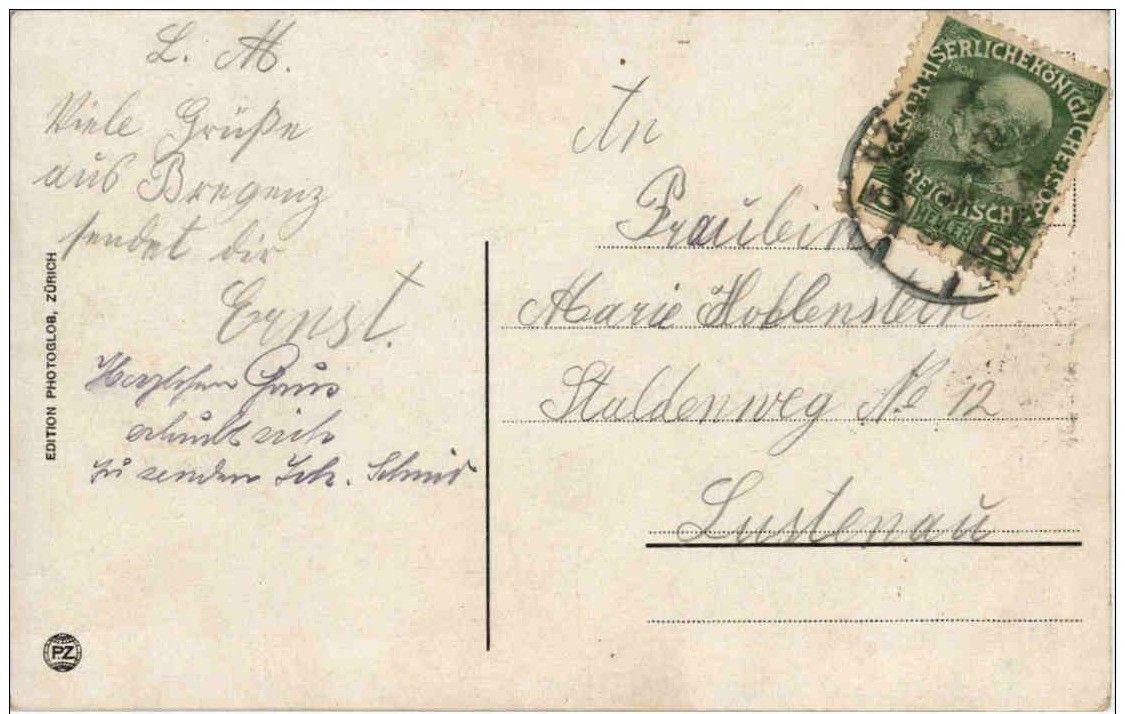 L. M.
Viele Grüße
aus Bregenz
sendet dir
Ernst.
Herzlichen Gruss
erlaubt sich
zu senden Joh. Schmid
An
Fräulein
Marie Hollenstein
Staldenweg No 12
Lustenau
EDITION PHOTOGLOB, ZÜRICH
PZ
KAISERLICHE KÖNIGLICHE ÖSTERREICHISCHE
5 HELLER 5